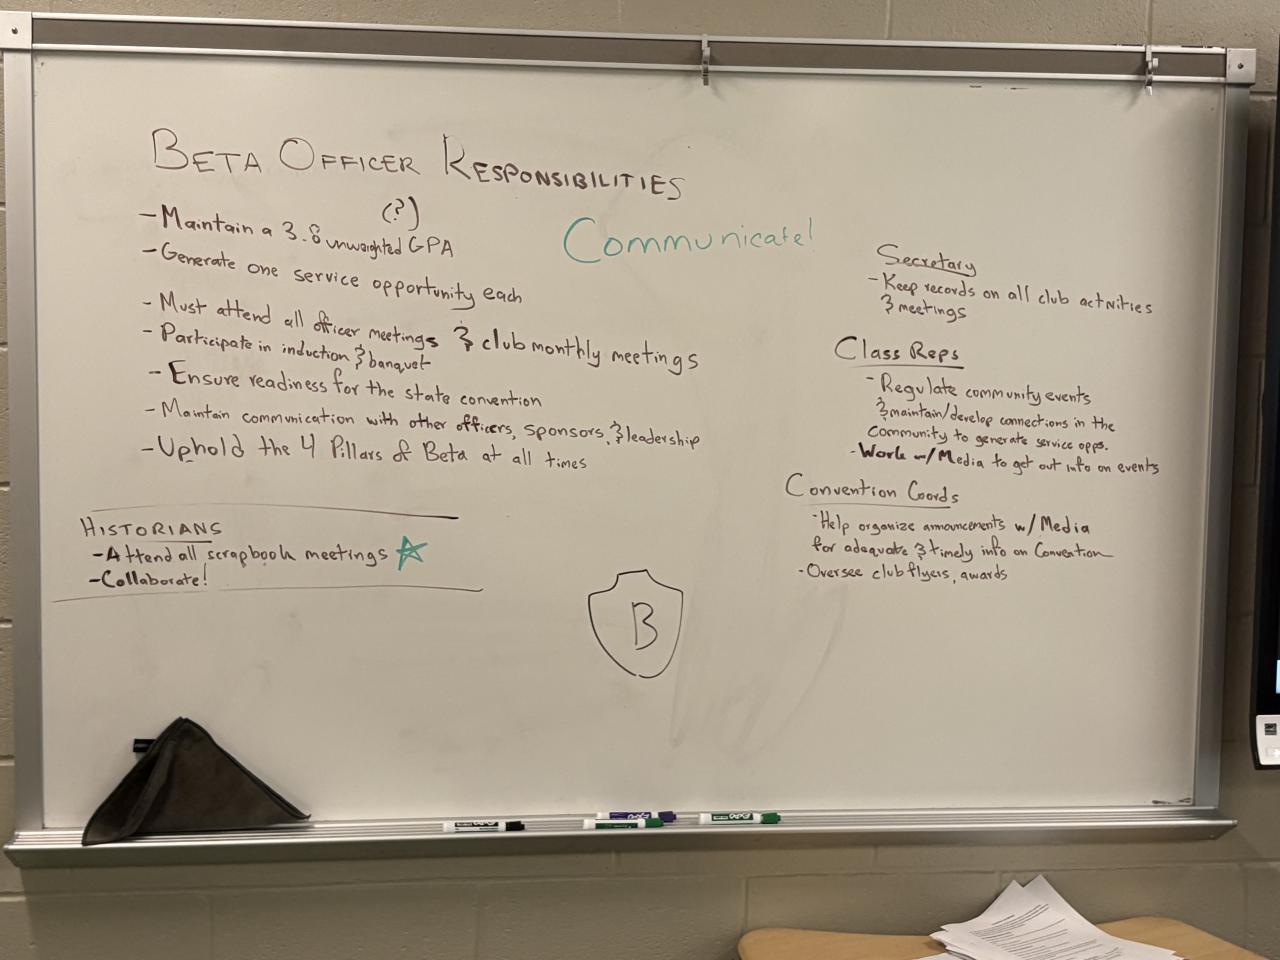 BETA OFFICER RESPONSIBILITIES
(?)
- Maintain a 3.8 unweighted GPA
- Generate one service opportunity each
- Must attend all officer meetings & club monthly meetings
- Participate in induction & banquet
- Ensure readiness for the state convention
- Maintain communication with other officers, sponsors, & leadership
- Uphold the 4 Pillars of Beta at all times
Communicate!
HISTORIANS
- Attend all scrapbook meetings
- Collaborate!
B
Secretary
- Keep records on all club activities
& meetings
Class Reps
- Regulate community events
& maintain/develop connections in the
community to generate service opps.
- Work w/Media to get out info on events
Convention Coords
- Help organize announcements w/ Media
for adequate & timely info on Convention
- Oversee club flyers, awards